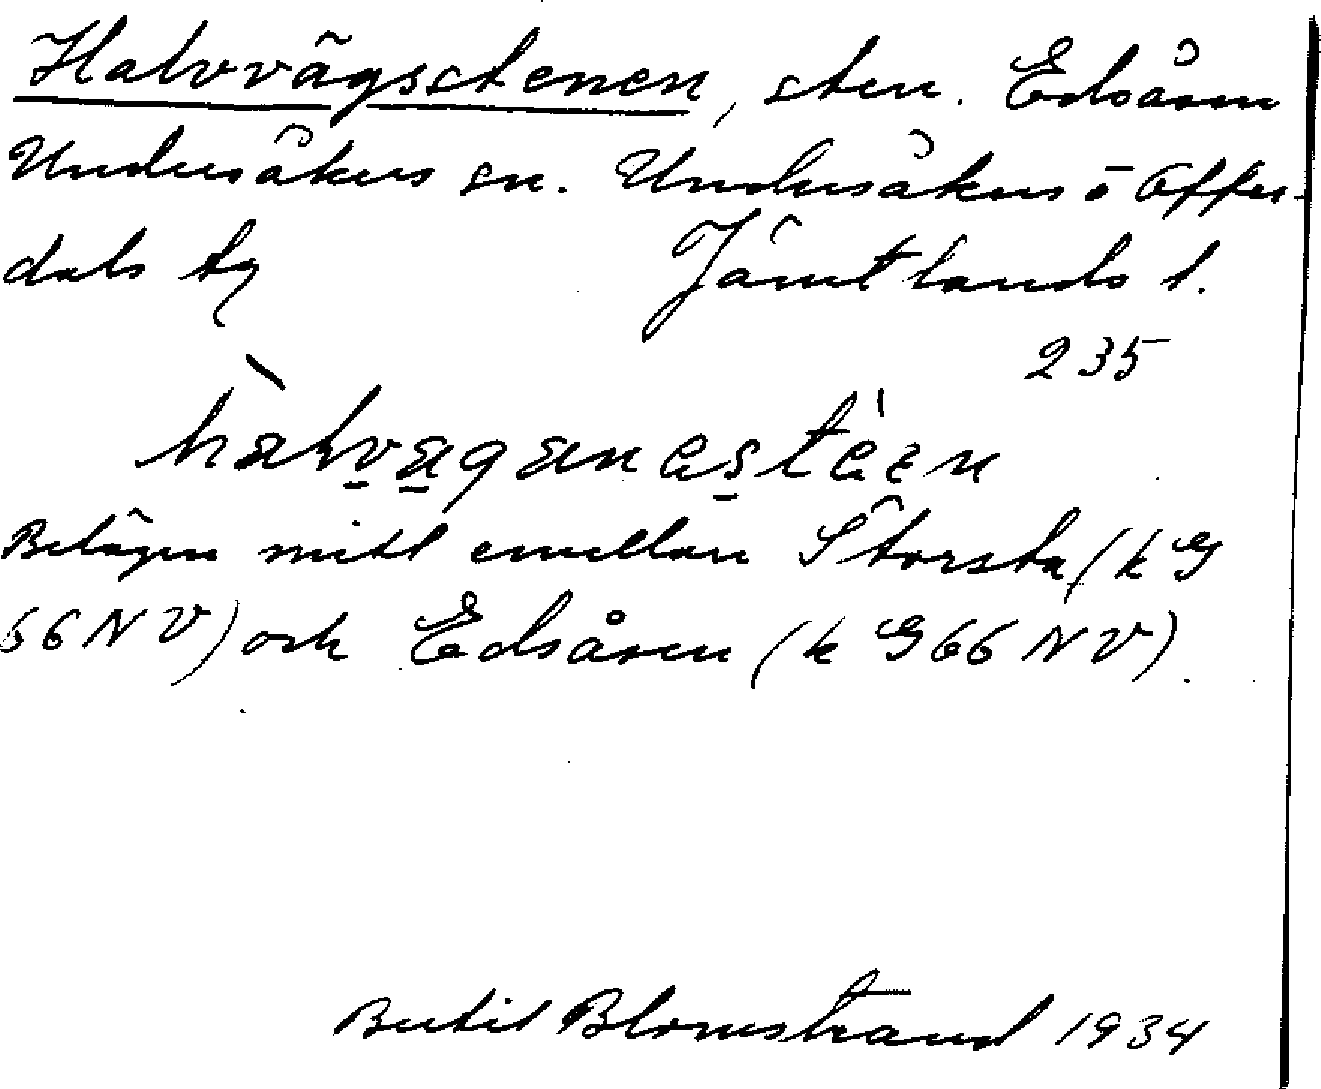 Halvvägsstenen, sten. Edsåsen
Undersåkers sn. Undersåkers o Offer-
dals tg Jämtlands l.
235
Belägen mitt emellan Storsta (k G
66 NV) och Edsåsen (k G 66 NV).
Bertil Blomstrand 1934